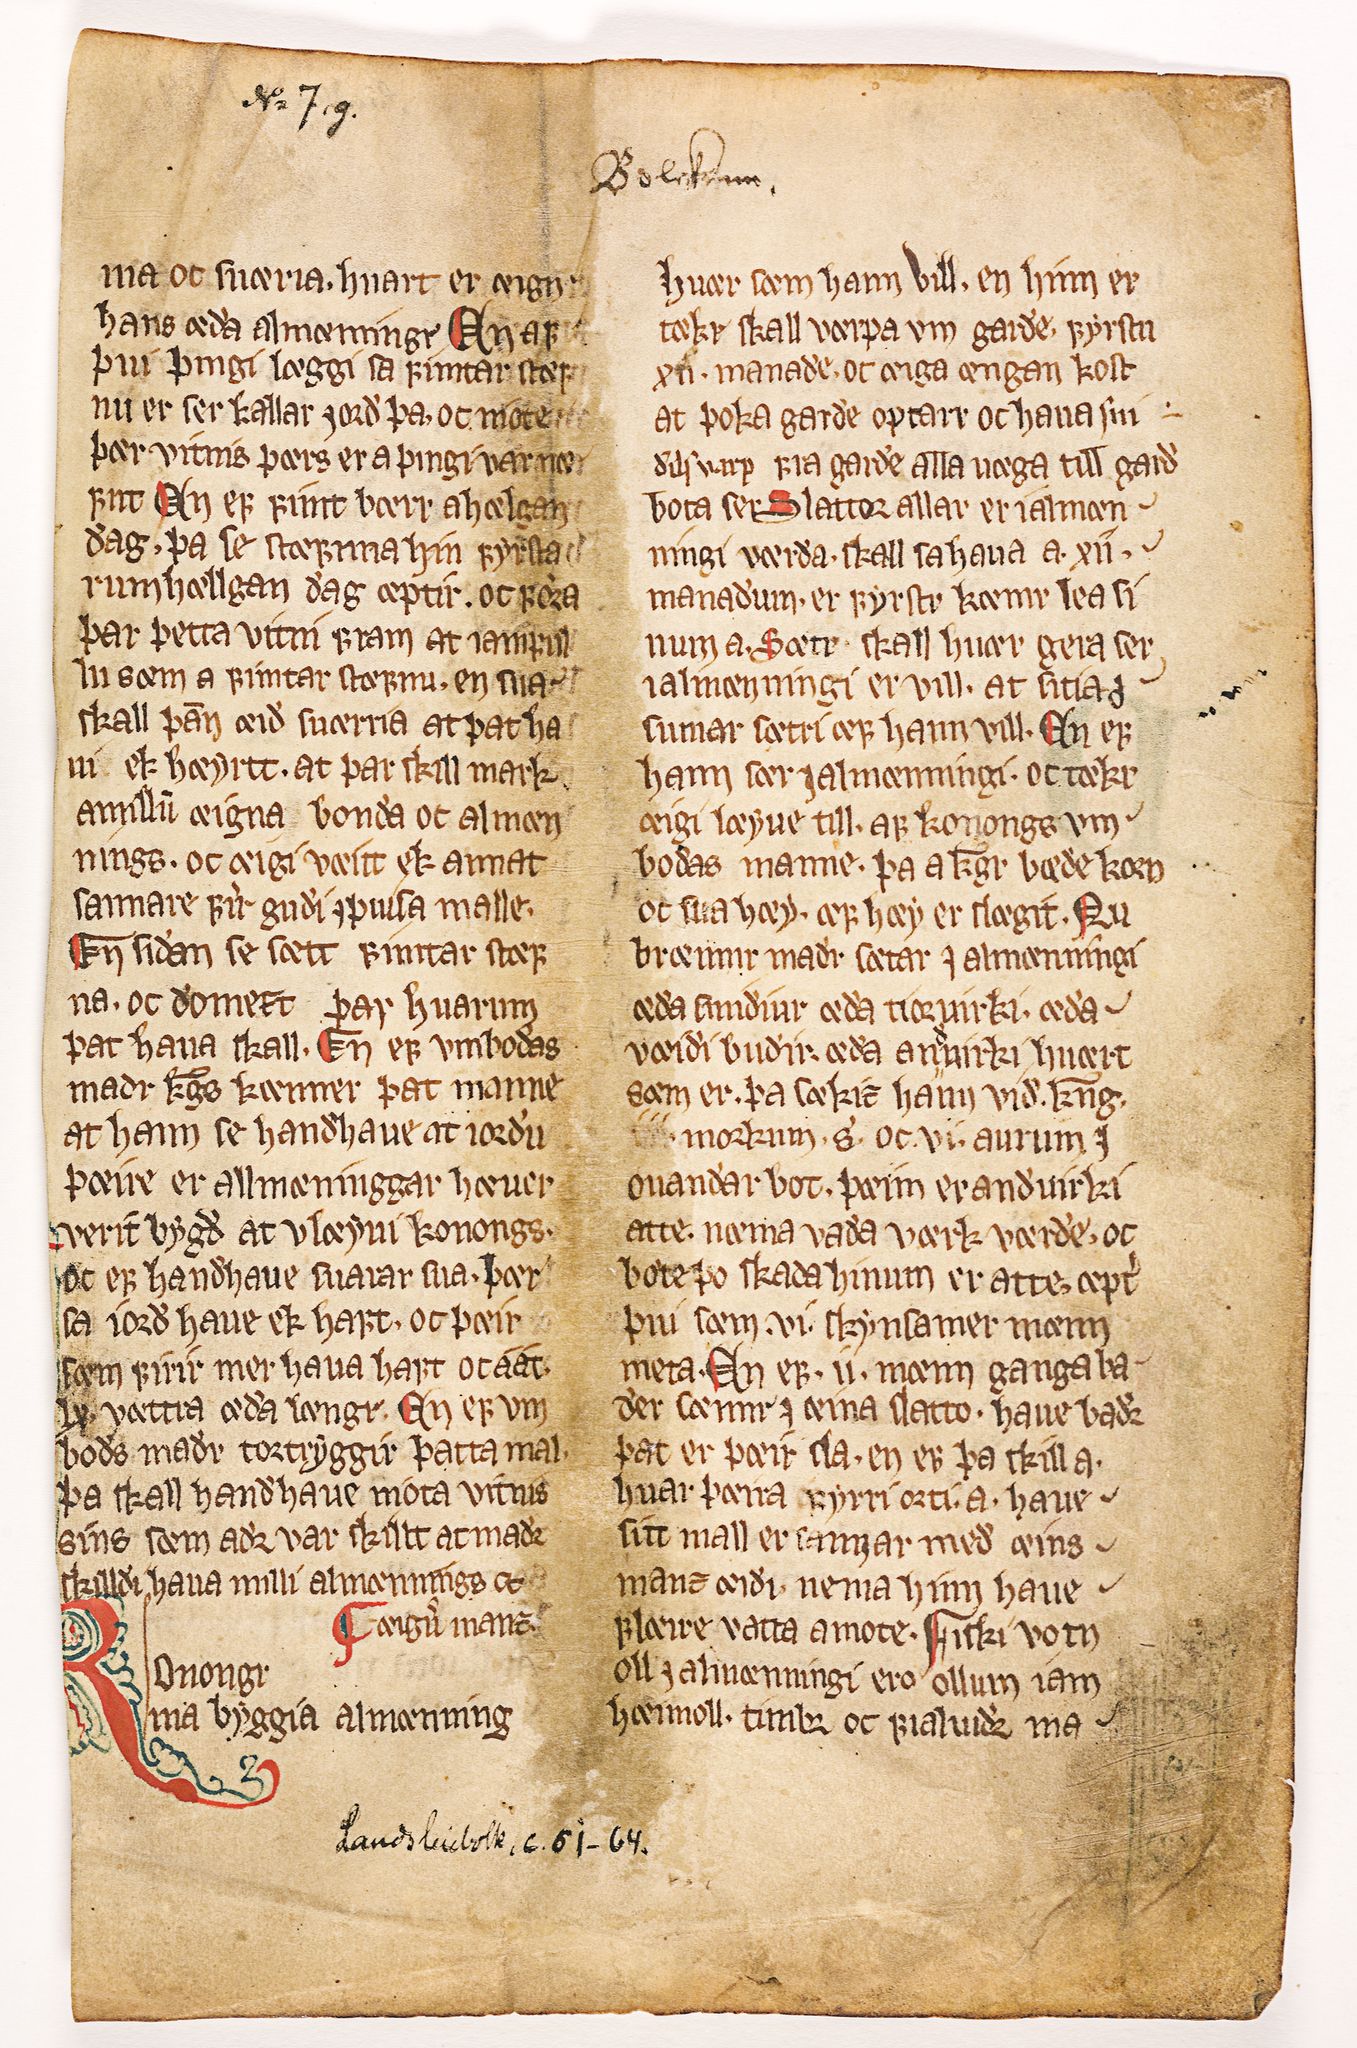 No 7, g.
Bolkrinn.
ma oc suæria. huart er æign
hans æđa almænningr En aꝼ
þui þingi læggi sa ꝼimtar stæꝼ
nu er ser kallar jorđ þa. oc mote
þær vitnis þærs er a þingi var næ
ꝼnt En eꝼ ꝼimt bærr a hælgan
đag. þa se stæꝼnna hin ꝼyrsta
rumhællgan đag æptir. oc ꝼöra
þar þetta vitni ꝼram at iamꝼul
lu sæm a ꝼimtar stæꝼnu. en sua
skall þān æiđ suærria at þat ha
ui ek hæyrtt. at þar skill mark
amillū æigna bonđa oc almæn
nings. oc æigi væitt ek annat
sannare ꝼir guđi j þuisa malle.
En siđan se sætt ꝼimtar stæꝼ
na. oc đomett þar huarum
þat haua skall. En eꝼ vmbođas
mađr kḡs kænner þat manne
at hann se hanđhaue at iorđu
þæire er allmænninggar hæuer
verit bygđ at vlæyui konongs.
oc eꝼ hanđhaue suarar sua. þær
sa iorđ haue ek haꝼt. oc þæir
sæm ꝼirir mer haua haꝼt oc aat.
xx. vættra æđa længr. En eꝼ vm
bođs mađr tortryggir þatta mal.
þa skall hanđhaue mota vitnis
sins sæm ađꝛ var skillt at mađꝛ
skillđi haua milli almænnings oc
¶ æigū manz.
Konongr
ma byggia almænning
Landsleiebolk, c. 61-64.
huær sæm hann vill. en hinn er
tækr skall værpa vm garđe. ꝼyrstu
xii. manađe. oc æiga ængan kost
at þoka garđe optarr oc haua sui
đils virþ ꝼra garđe alla uæga till garđ
bota ser Slattoꝛ allar er i almæn
ningi værđa. skall sa haua a. xii.
manađum. er ꝼyrstr kæmr lea si
num a. Sætr skall huær gera ser
i almænningi er vill. at sitia j
sumar sætri æꝼ hann vill. En eꝼ
hann sær j almænningi. oc tækr
æigi læyue till. aꝼ konongs vm
bođas manne. þa a kḡr bæđe koꝛn
oc sua hæy. æꝼ hæy er slægit. Nu
brænnir mađr sætar j almænningi
æđa smiđiur æđa tioꝛuirki. æđa
væiđi buđir. æđa anđuirki huært
sæm er. þa sækiz hann viđ. kn̄g.
iiii. morkum. s. oc. vi. aurum j
ouanđar bot. þæim er anđuirki
atte. næma vađa værk værđe. oc
böte þo skađa hinum er atte. æpt͛
þui sæm. vi. skynsamer mænn
meta. En eꝼ. ii. mænn ganga ba
đer sænnr j æina slatto. haue bađꝛ
þat er þæir sla. en eꝼ þa skill a.
huar þæira ꝼyrri orti. a. haue
sitt mall er sannar međ æins
manz æiđi. nema hinn haue
ꝼlæire vatta a mote. Fiski votn
oll j almænningi ero ollum iam
hæimoll. timbꝛ oc ꝼialuiđꝛ ma